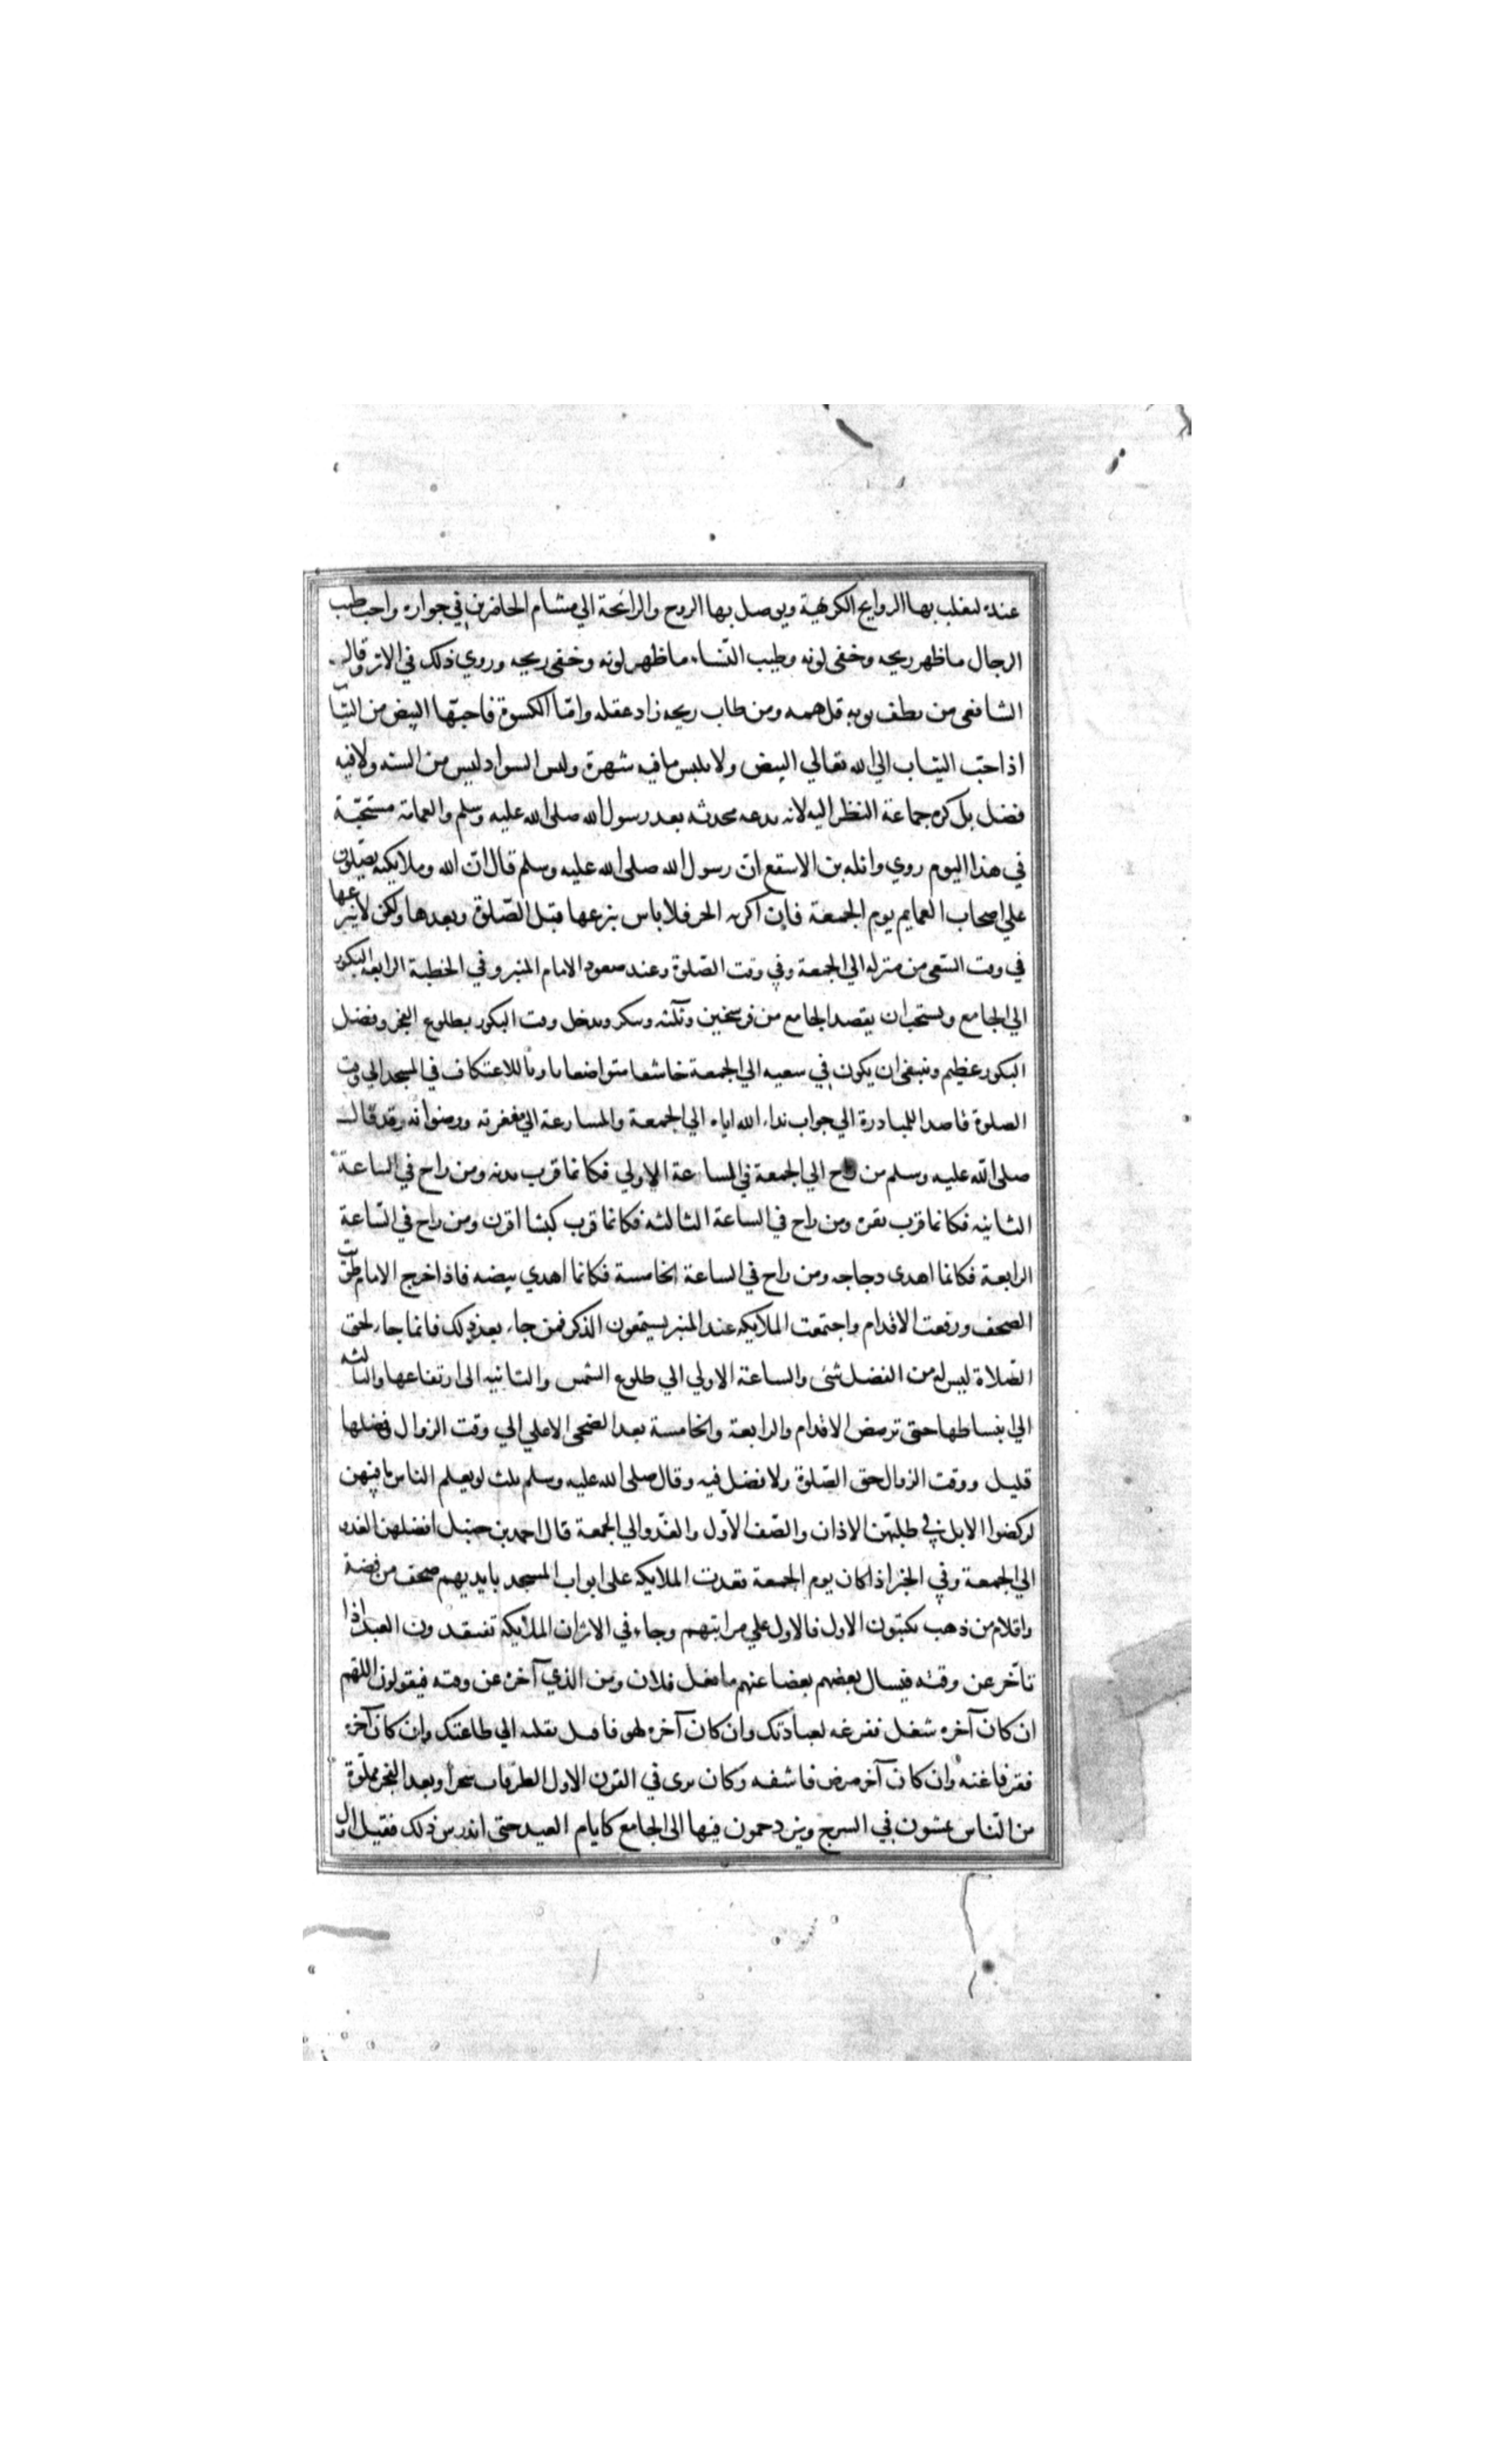 عنده ليغلب بها الروايح الكريهة ويوصل بها الروح والرائحة الي مشام الحاضرين في جواره واحب طيب
الرجال ما ظهر ريحه وخفي لونه وطيب النساء ما ظهر لونه وخفي ريحه وروي ذلك في الاثر وقال
الشافعي من نظف ثوبه قل همه ومن طاب ريحه زاد عقله وامّا الكسوة فاحبّها البيض من الثياب
اذ احبّ الثياب الي الله تعالي البيض ولا يلبس ما فيه شهرة ولبس السواد ليس من السنه ولا فيه
فضل بل كره جماعة النظر اليه لانه بدعه محدثه بعد رسول الله صلى الله عليه وسلم والعمامة مستحبّة
في هذا اليوم روي واثله بن الاسقع انّ رسول الله صلى الله عليه وسلم قال انّ الله وملايكته يصلّون
علي اصحاب العمايم يوم الجمعة فإن اكربه الحر فلا باس بنزعها قبل الصّلوة وبعدها ولكن لا ينزعها
في وقت السّعي من منزله الي الجمعة وفي وقت الصّلوة وعند صعود الامام المنبر وفي الخطبة الرابعه البكور
الي الجامع ويستحب ان يقصد الجامع من فرسخين وثلثه ويبكر ويدخل وقت البكور بطلوع الفجر وفضل
البكور عظيم وينبغي ان يكون في سعيه الي الجمعة خاشعا متواضعا ناويا للاعتكاف في المسجد الي وقت
الصلوة قاصدا للمبادرة الي جواب نداء الله اياه الي الجمعة والمسارعة الي مغفرته ورضوانه وقد قال
صلى الله عليه وسلم من راح الي الجمعة في الساعة الاولي فكانما قرب بدنه ومن راح في الساعة
الثانيه فكانما قرب بقرة ومن راح في الساعة الثالثه فكانما قرب كبشا اقرن ومن راح في السّاعة
الرابعة فكانما اهدى دجاجه ومن راح في الساعة الخامسة فكانما اهدي بيضه فاذا خرج الامام طويت
الصحف ورفعت الاقدام واجتمعت الملايكه عند المنبر يستمعون الذكر فمن جاء بعد ذلك فانما جاء لحق
الصّلاة ليس له من الفضل شئ والساعة الاولي الي طلوع الشمس والثانيه الى ارتفاعها والثالثه
الي انبساطها حتى ترمض الاقدام والرابعة والخامسة بعد الضحى الاعلي الي وقت الزوال وفضلها
قليل ووقت الزوال حق الصّلوة ولا فضل فيه وقال صلى الله عليه وسلم ثلث لو يعلم الناس ما فيهن
لركضوا الابل في طلبهنّ الاذان والصّف الاوّل والغدو الي الجمعة قال احمد بن حنبل افضلهن الغدو
الي الجمعة وفي الخبر اذا كان يوم الجمعة قعدت الملايكه على ابواب المسجد بايديهم صحف من فضة
واقلام من ذهب يكتبون الاول فالاول علي مراتبهم وجاء في الاثر ان الملائكة تفتقدون العبد اذا
تاخّر عن وقته فيسال بعضهم بعضا عنهم ما فعل فلان ومن الذي آخره عن وقته فيقولون اللّهم
ان كان آخره شغل ففرغه لعبادتك وان كان آخره لهو فاقبل بقلبه الي طاعتك وان كان آخره
فقر فاغنه وان كان آخره مرض فاشفه وكان يرى في القرن الاول الطرقات سحرا وبعد الفجر مملوّة
من النّاس يمشون في السرج ويزدحمون فيها الى الجامع كايام العيد حتى اندرس ذلك فقيل اول